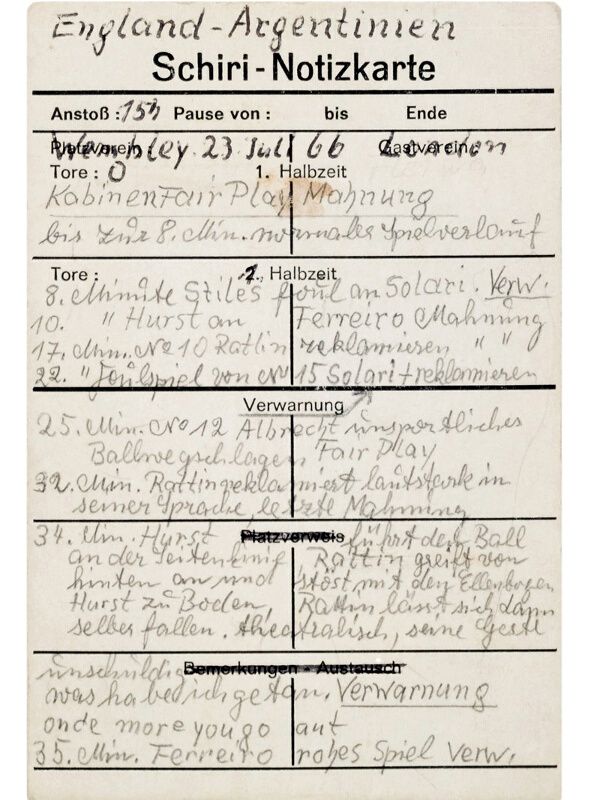 England - Argentinien
Schiri-Notizkarte
Anstoß : 15h Pause von : bis Ende
Platzverein Gastverein
Wembley 23 Juli 66 London
Tore : 0 1. Halbzeit
Kabinen Fair Play Mahnung
bis zur 8. Min. normaler Spielverlauf
Tore : 2. Halbzeit
8. Minute Stiles foul an Solari. Verw.
10. " Hurst an Ferreiro Mahnung
17. Min. No 10 Rattin reklamieren " "
22. " Foulspiel von No 15 Solari + reklamieren
Verwarnung
25. Min. No 12 Albrecht unsportliches
Ballwegschlagen Fair Play
32. Min. Rattin reklamiert lautstark in
seiner Sprache letzte Mahnung
Platzverweis
34. Min. Hurst führt den Ball
an der Seitenlinie, Rattin greift von
hinten an und stöst mit den Ellenbogen
Hurst zu Boden, Rattin lässt sich dann
selber fallen. theatralisch, seine Geste
Bemerkungen - Austausch
unschuldig
was habe ich getan. Verwarnung
onde more you go aut
35. Min. Ferreiro rohes Spiel Verw.